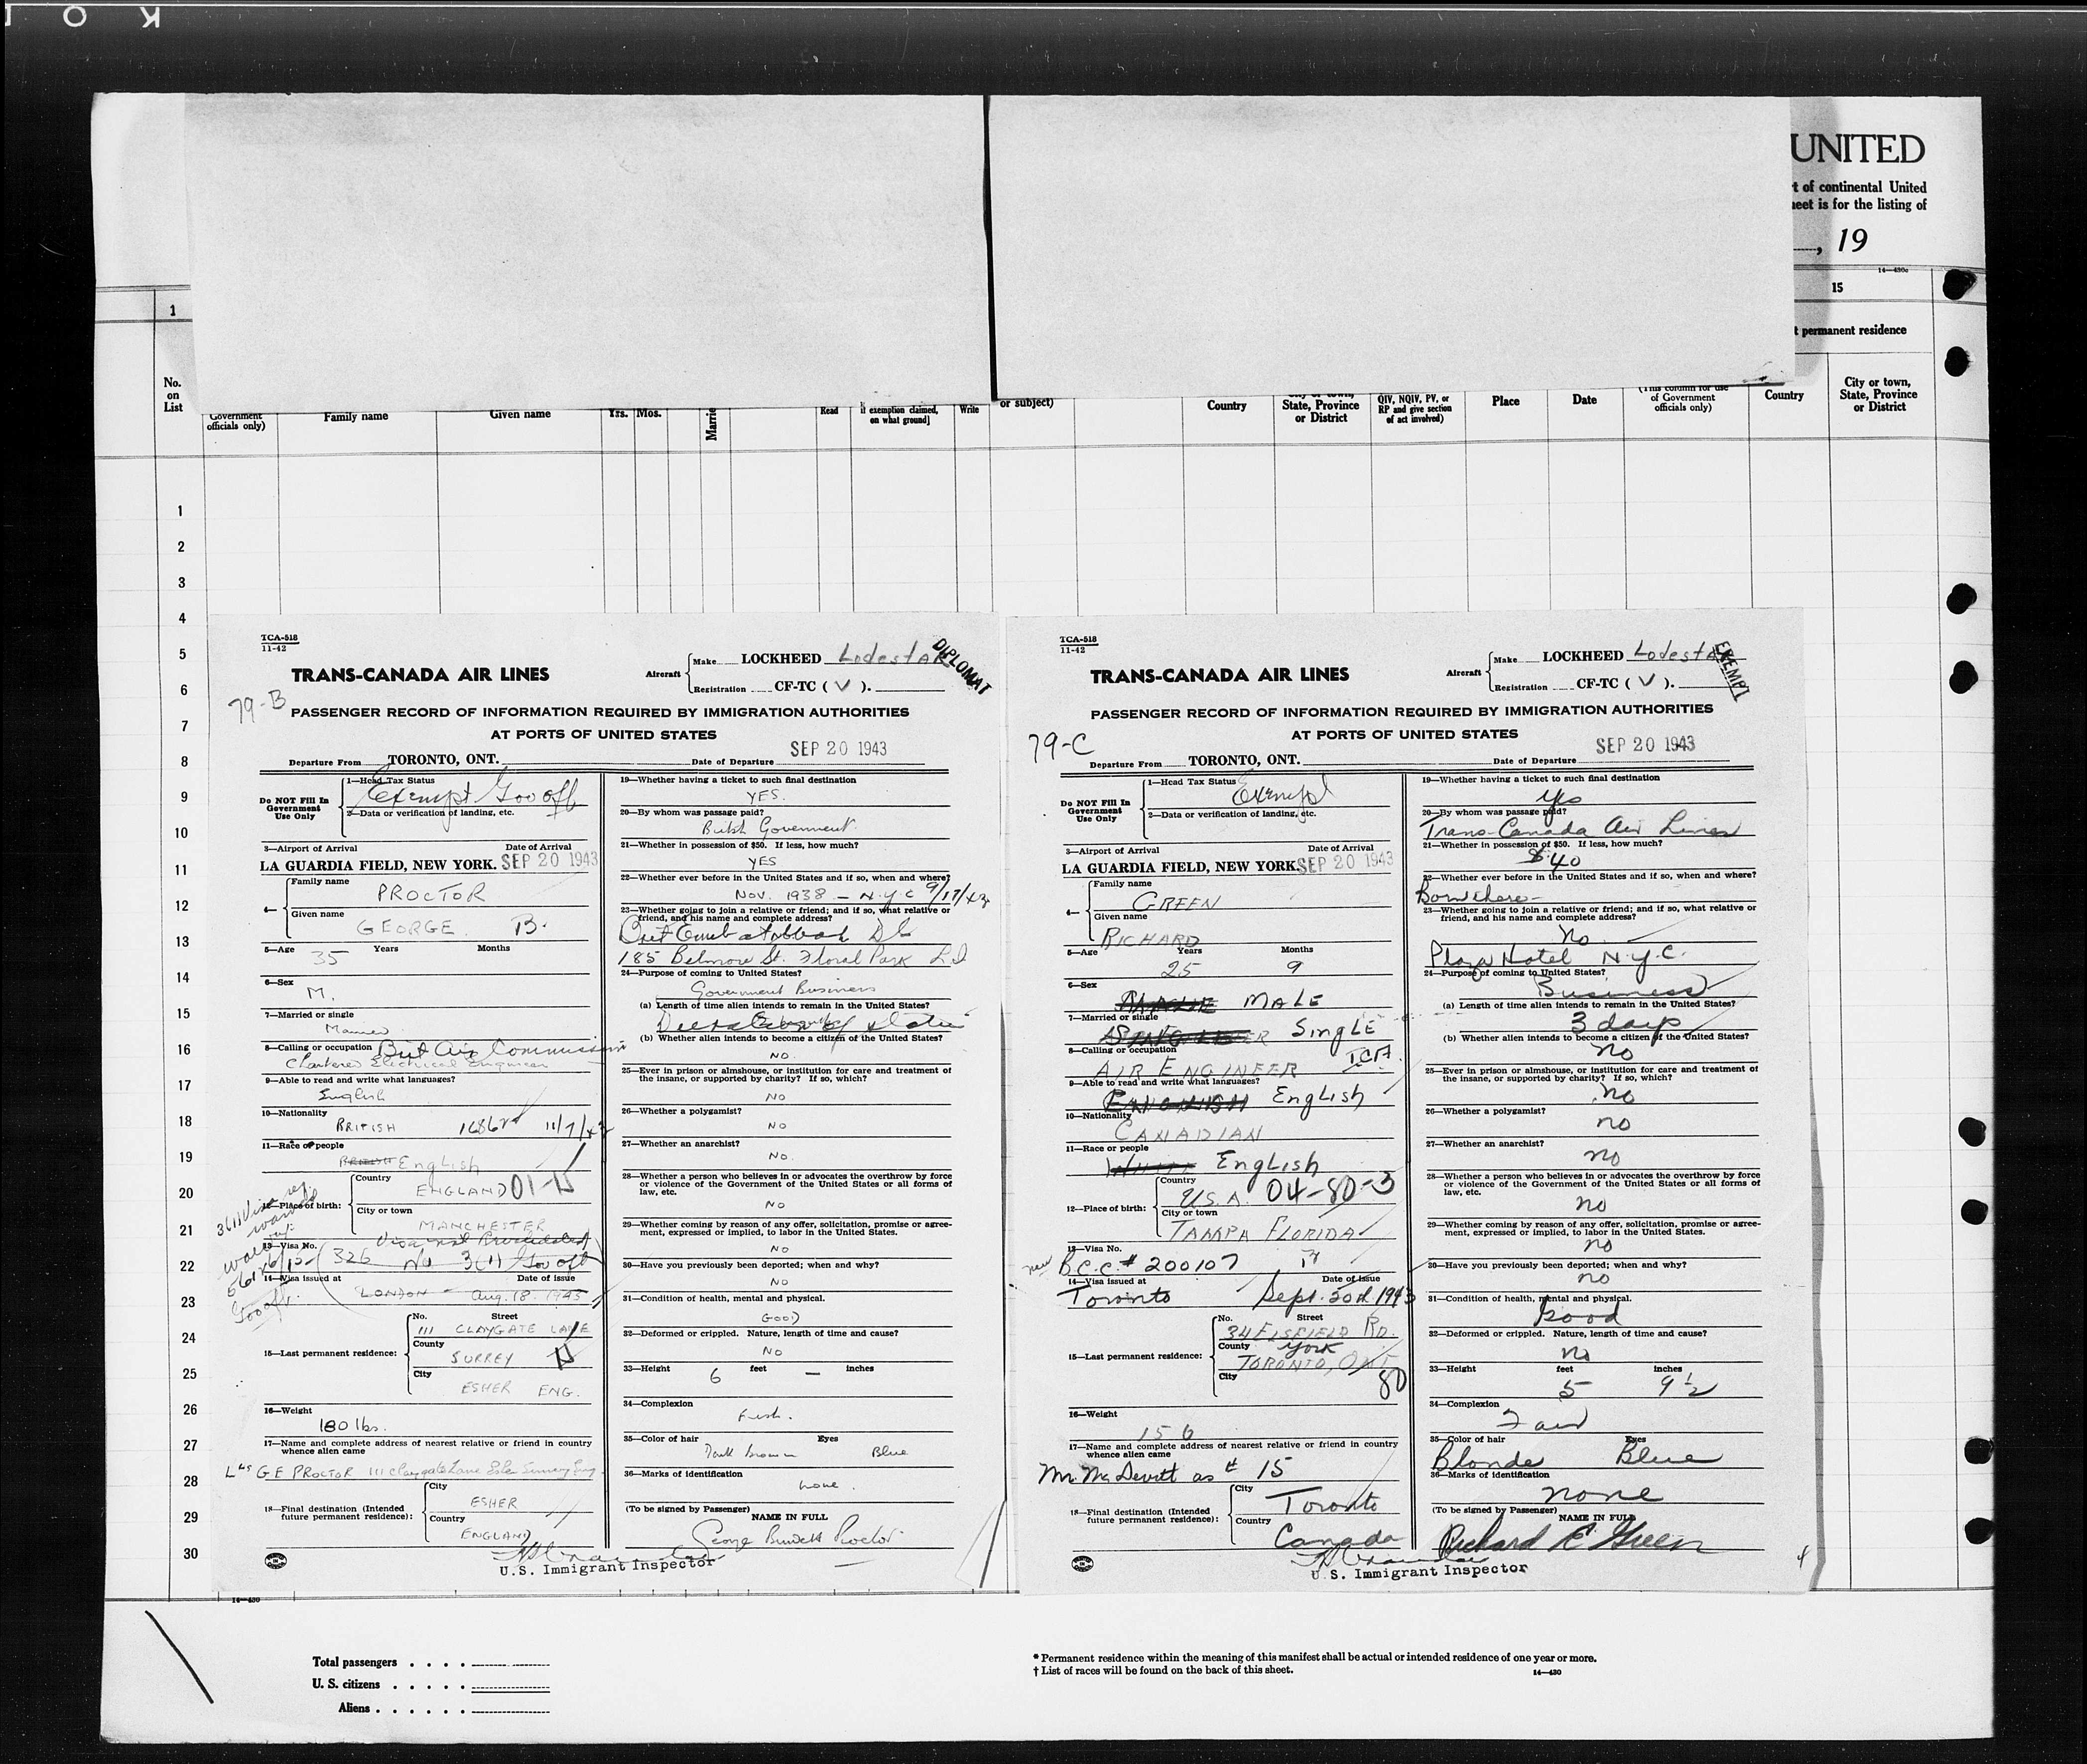 K O
UNITED
t of continental United
eet is for the listing of
, 19
14—430c
15
1
t permanent residence
No.
on
List
Government
officials only)
Family name
Given name
Yrs. Mos.
Marrie
Read
if exemption claimed,
on what ground]
Write
or subject)
Country
State, Province
or District
QIV, NQIV, PV, or
RP and give section
of act involved)
Place
Date
(This column for use
of Government
officials only)
Country
City or town,
State, Province
or District
1
2
3
4
5
6
7
8
9
10
11
12
13
14
15
16
17
18
19
20
21
22
23
24
25
26
27
28
29
30
TCA-518
11-42
TRANS-CANADA AIR LINES
Aircraft
Make LOCKHEED LodestAR
Registration CF-TC ( V ).
DIPLOMAT
79-B
PASSENGER RECORD OF INFORMATION REQUIRED BY IMMIGRATION AUTHORITIES
AT PORTS OF UNITED STATES
SEP 20 1943
Departure From TORONTO, ONT. Date of Departure
Do NOT Fill In
Government
Use Only
1—Head Tax Status
Exempt Gov off
2—Data or verification of landing, etc.
3—Airport of Arrival Date of Arrival
LA GUARDIA FIELD, NEW YORK. SEP 20 1943
4—
Family name
PROCTOR
Given name
GEORGE B.
5—Age Years Months
35
6—Sex
M.
7—Married or single
Married
8—Calling or occupation Brit Air Commission
Chartered Electrical Engineer
9—Able to read and write what languages?
English
10—Nationality
BRITISH 11/7/42
11—Race or people
BRITISH English
12—Place of birth:
Country
ENGLAND 01-15
City or town
MANCHESTER
13—Visa No.
326 No 3(1) Gov off
14—Visa issued at Date of issue
LONDON Aug. 18. 1943
15—Last permanent residence:
No. Street
111 CLAYGATE LANE
County
SURREY
City
ESHER ENG.
16—Weight
180 lbs.
17—Name and complete address of nearest relative or friend in country
whence alien came
G E PROCTOR 111 Claygate Lane Esher Surrey Eng
18—Final destination (Intended
future permanent residence):
City
ESHER
Country
ENGLAND
U.S. Immigrant Inspector
19—Whether having a ticket to such final destination
YES.
20—By whom was passage paid?
British Government.
21—Whether in possession of $50. If less, how much?
YES
22—Whether ever before in the United States and if so, when and where?
Nov. 1938 — N.Y.C 9/17/42
23—Whether going to join a relative or friend; and if so, what relative or
friend, and his name and complete address?
185 Belmore St. Floral Park L.I
24—Purpose of coming to United States?
Government Business
(a) Length of time alien intends to remain in the United States?
(b) Whether alien intends to become a citizen of the United States?
NO.
25—Ever in prison or almshouse, or institution for care and treatment of
the insane, or supported by charity? If so, which?
NO
26—Whether a polygamist?
NO
27—Whether an anarchist?
NO.
28—Whether a person who believes in or advocates the overthrow by force
or violence of the Government of the United States or all forms of
law, etc.
NO
29—Whether coming by reason of any offer, solicitation, promise or agree-
ment, expressed or implied, to labor in the United States.
NO
30—Have you previously been deported; when and why?
NO
31—Condition of health, mental and physical.
GOOD
32—Deformed or crippled. Nature, length of time and cause?
NO
33—Height feet inches
6 —
34—Complexion
Fresh.
35—Color of hair Eyes
Dark brown Blue
36—Marks of identification
None.
(To be signed by Passenger)
NAME IN FULL
George Burdett Proctor
TCA-518
11-42
TRANS-CANADA AIR LINES
Aircraft
Make LOCKHEED LodestAR
Registration CF-TC ( V ).
EXEMPT
79-C
PASSENGER RECORD OF INFORMATION REQUIRED BY IMMIGRATION AUTHORITIES
AT PORTS OF UNITED STATES
SEP 20 1943
Departure From TORONTO, ONT. Date of Departure
Do NOT Fill In
Government
Use Only
1—Head Tax Status
Exempt
2—Data or verification of landing, etc.
3—Airport of Arrival Date of Arrival
LA GUARDIA FIELD, NEW YORK SEP 20 1943
4—
Family name
GREEN
Given name
RICHARD
5—Age Years Months
25 9
6—Sex
MALE
7—Married or single
SingLE
8—Calling or occupation
AIR ENGINEER TCA.
9—Able to read and write what languages?
ENGLISH EngLish
10—Nationality
CANADIAN
11—Race or people
WHITE EngLish
12—Place of birth:
Country
U.S.A. 04-80-3
City or town
TAMPA FLORIDA
13—Visa No.
new B.C.C. # 200107
14—Visa issued at Date of issue
Toronto Sept. 20th 1943
15—Last permanent residence:
No. Street
34 ELSFIELD RD.
County York
TORONTO, ONT
City
80
16—Weight
156
17—Name and complete address of nearest relative or friend in country
whence alien came
Mr McDevitt as # 15
18—Final destination (Intended
future permanent residence):
City
Toronto
Country
Canada
U.S. Immigrant Inspector
19—Whether having a ticket to such final destination
yes
20—By whom was passage paid?
Trans-Canada Air Lines
21—Whether in possession of $50. If less, how much?
$40
22—Whether ever before in the United States and if so, when and where?
Born there—
23—Whether going to join a relative or friend; and if so, what relative or
friend, and his name and complete address?
no.
Plaza Hotel N.Y.C.
24—Purpose of coming to United States?
Business
(a) Length of time alien intends to remain in the United States?
3 days
(b) Whether alien intends to become a citizen of the United States?
no
25—Ever in prison or almshouse, or institution for care and treatment of
the insane, or supported by charity? If so, which?
no
26—Whether a polygamist?
no
27—Whether an anarchist?
no
28—Whether a person who believes in or advocates the overthrow by force
or violence of the Government of the United States or all forms of
law, etc.
no
29—Whether coming by reason of any offer, solicitation, promise or agree-
ment, expressed or implied, to labor in the United States.
no
30—Have you previously been deported; when and why?
no
31—Condition of health, mental and physical.
Good
32—Deformed or crippled. Nature, length of time and cause?
no
33—Height feet inches
5 9 1/2
34—Complexion
Fair
35—Color of hair Eyes
Blonde Blue
36—Marks of identification
none
(To be signed by Passenger)
NAME IN FULL
Richard E Green
14—430
Total passengers . . . .
U. S. citizens . . . . .
Aliens . . . . . .
* Permanent residence within the meaning of this manifest shall be actual or intended residence of one year or more.
† List of races will be found on the back of this sheet.
14—430